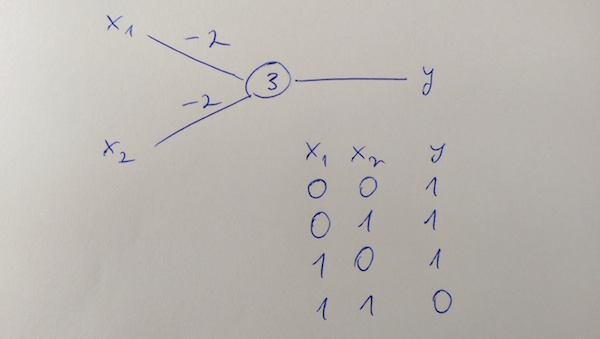 x₁ -2
3 y
-2
x₂
x₁ x₂ y
0 0 1
0 1 1
1 0 1
1 1 0